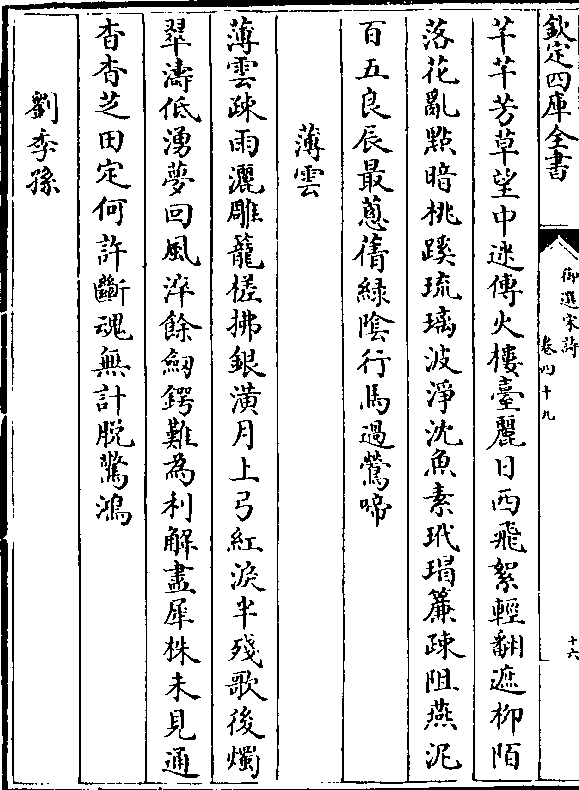 欽定四庫全書
御選宋詩
卷四十九
十六
芊芊芳草望中迷傳火樓臺麗日西飛絮輕翻遮柳陌
落花亂點暗桃蹊琉璃波淨沈魚素玳瑁簾疎阻燕泥
百五良辰最蔥蒨綠陰行馬過鶯啼
薄雲
薄雲疎雨灑雕籠槎拂銀潢月上弓紅淚半殘歌後燭
翠濤低湧夢回風淬餘劒鍔難為利解盡犀株未見通
杳杳芝田定何許斷魂無計脫驚鴻
劉季孫